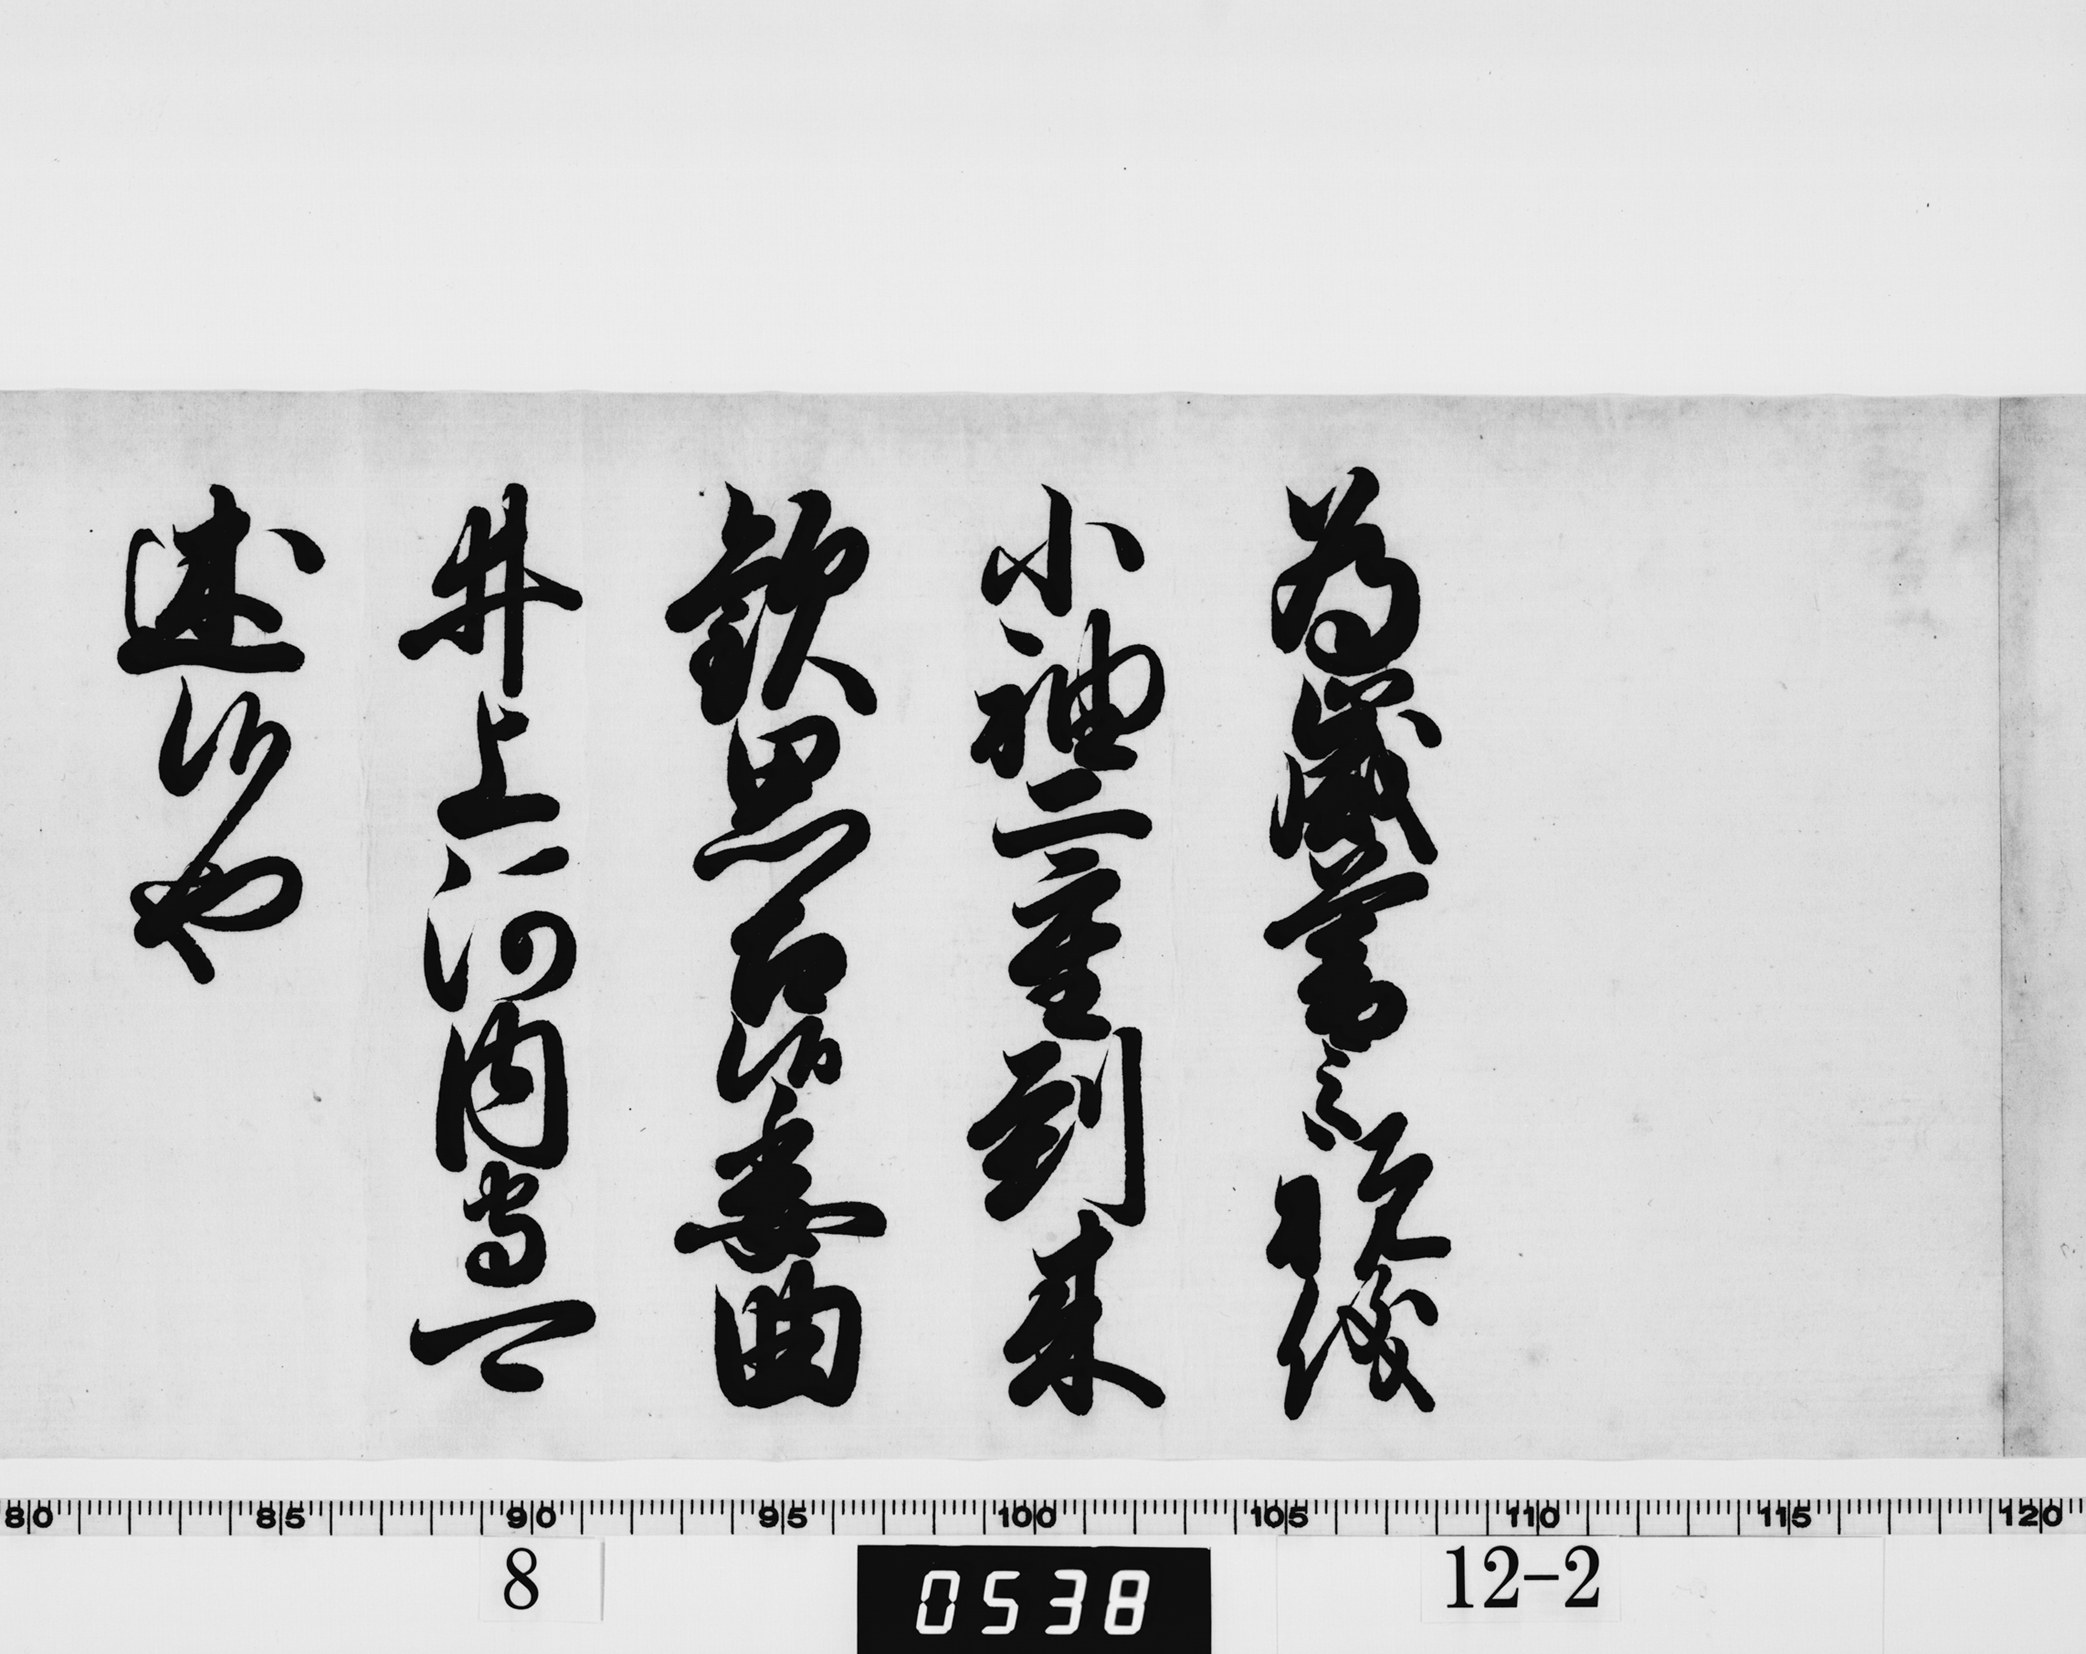 為歳暮之祝儀
小袖二重到来
歓思召候委曲
井上河内守可
述候也
80 85 90 95 100 105 110 115 120
8 0538 12-2